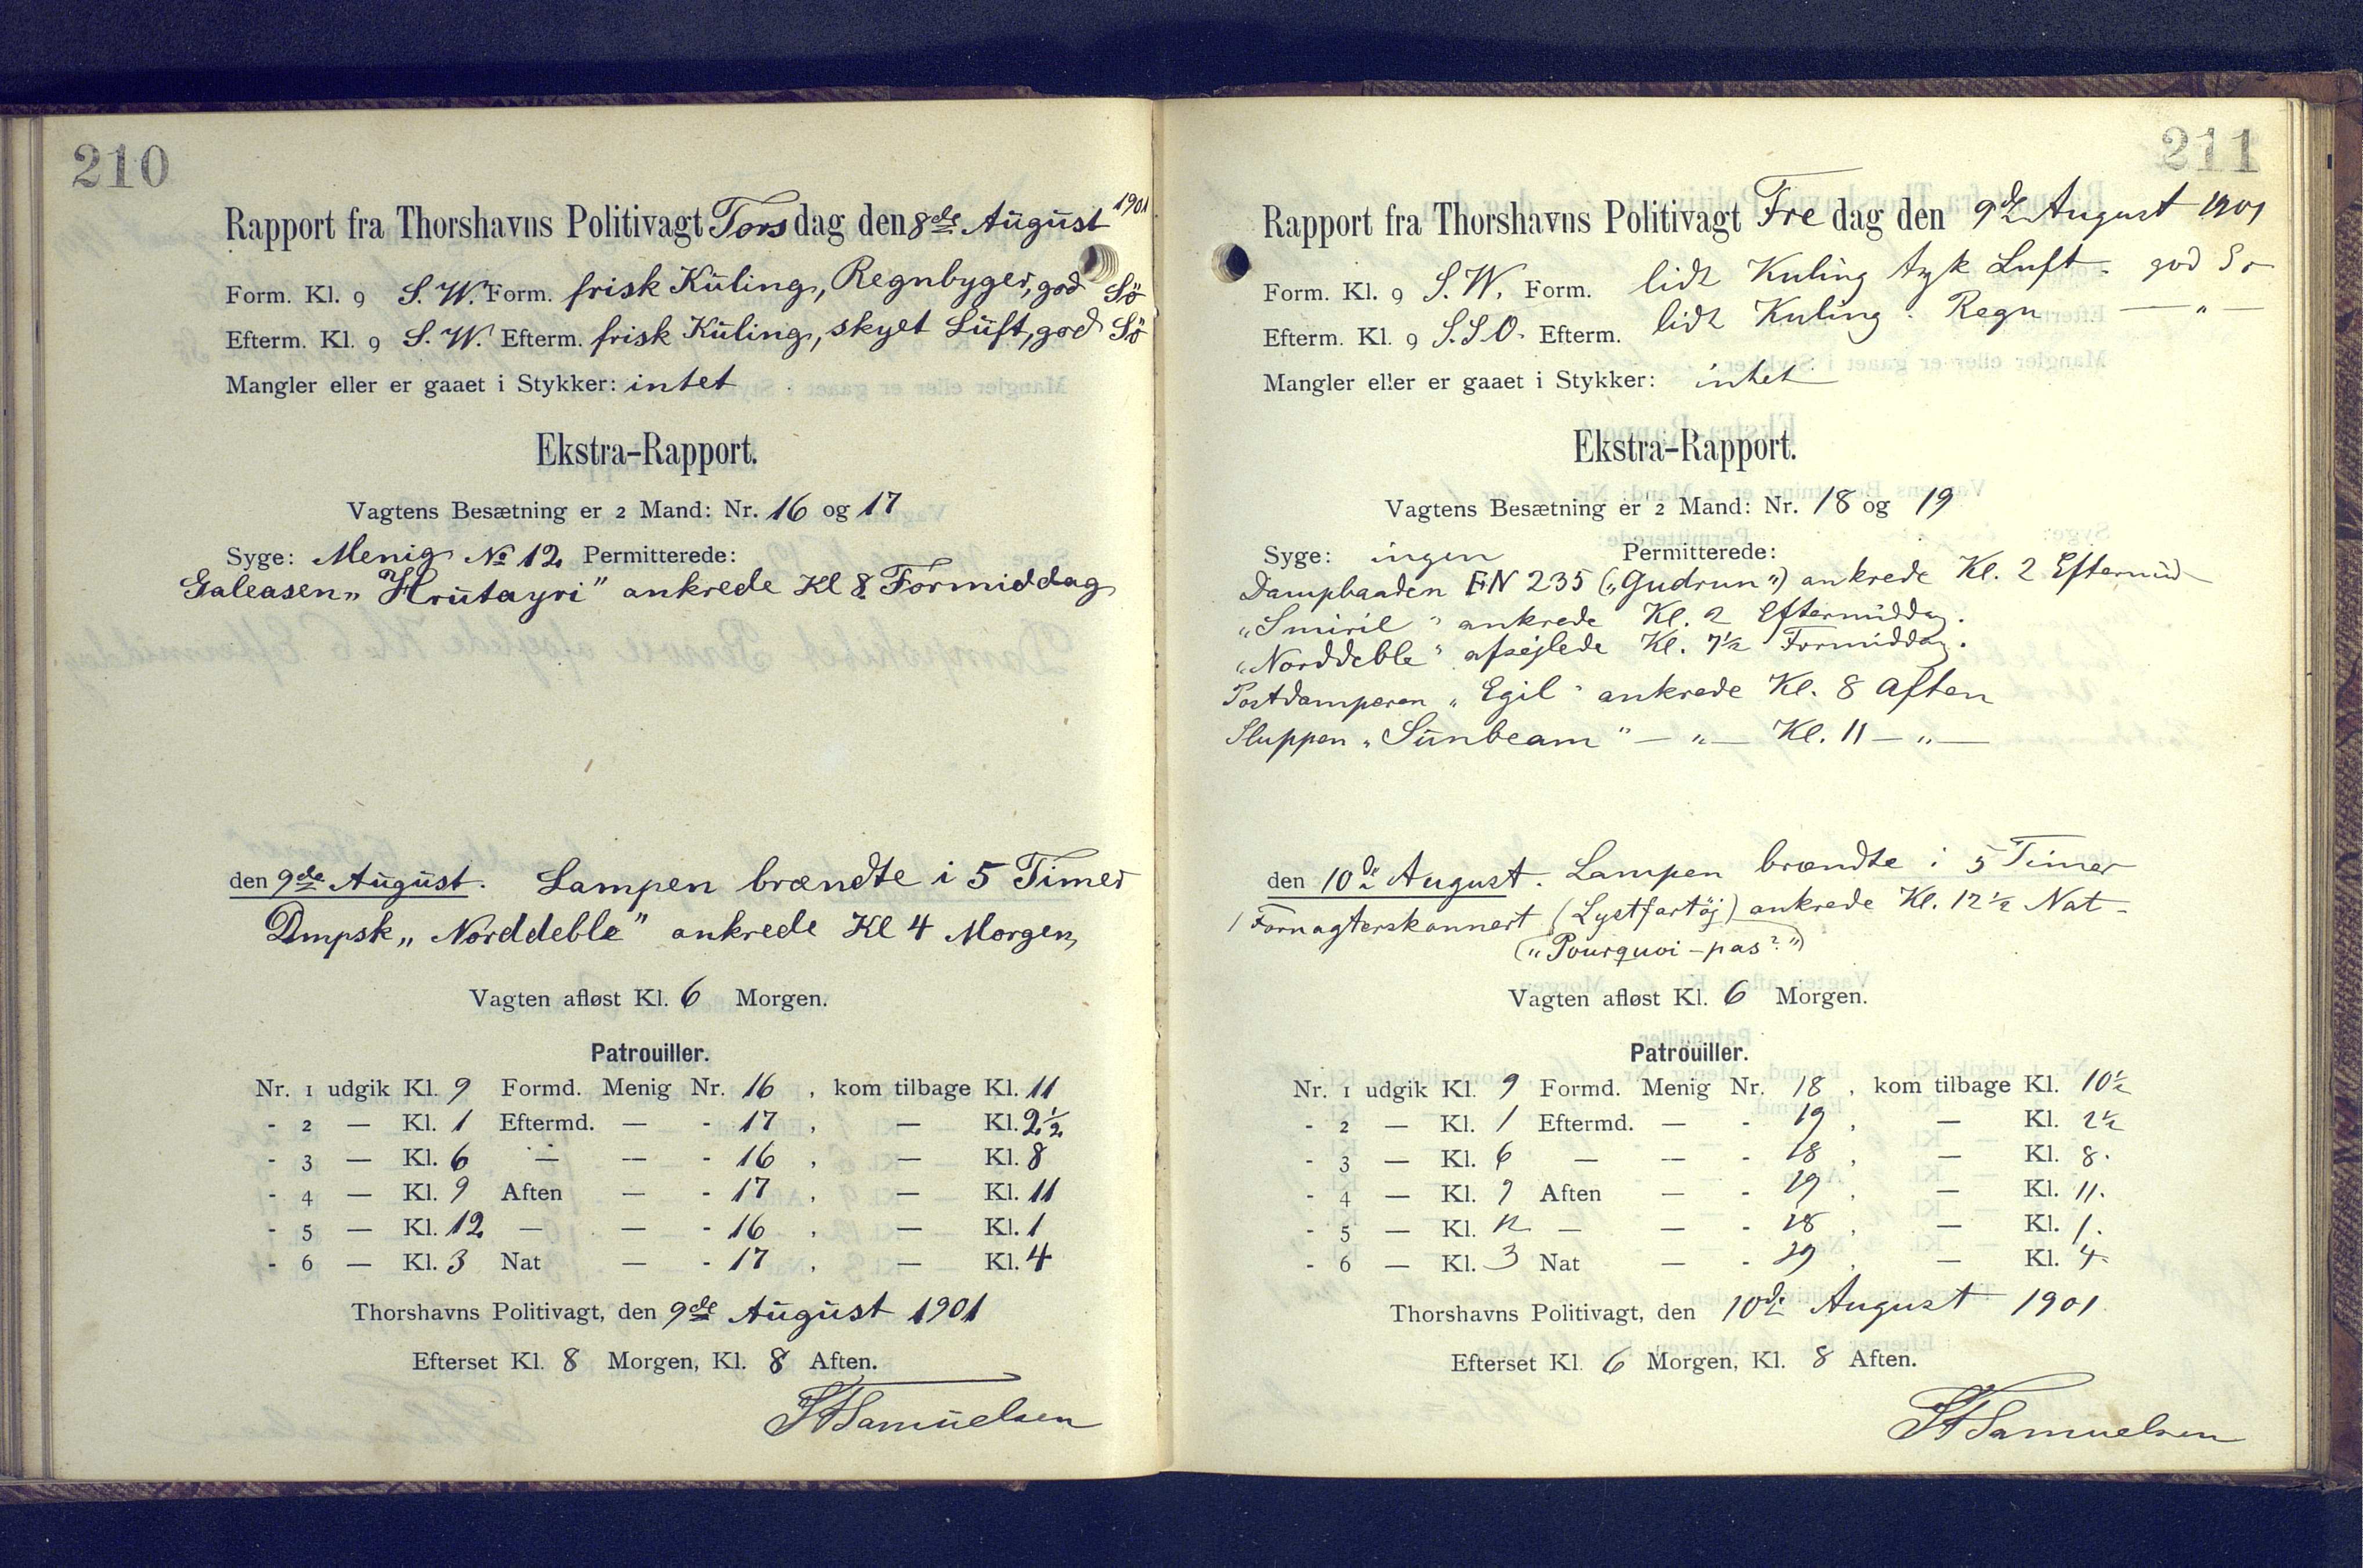 210
Rapport fra Thorshavns Politivagt Torsdag den 8de August 1901
Form. Kl. 9 S. W. Form. frisk Kuling, Regnbyger, god Sö
Efterm. Kl. 9 S. W. Efterm. frisk Kuling, skyet Luft, god Sö
Mangler eller er gaaet i Stykker: intet
Ekstra-Rapport.
Vagtens Besætning er 2 Mand: Nr. 16 og 17
Syge: Menig No 12 Permitterede:
Galeasen „Hrutayri" ankrede Kl 8 Formiddag
den 9de August. Lampen brændte i 5 Timer
Dmpsk „Norddeble" ankrede Kl 4 Morgen,
Vagten afløst Kl. 6 Morgen.
Patrouiller.
Nr. 1 udgik Kl. 9 Formd. Menig Nr. 16, kom tilbage Kl. 11
- 2 — Kl. 1 Eftermd. — - 17, — Kl. 2½
- 3 — Kl. 6 — — - 16, — Kl. 8
- 4 — Kl. 9 Aften — - 17, — Kl. 11
- 5 — Kl. 12 — — - 16, — Kl. 1
- 6 — Kl. 3 Nat — - 17, — Kl. 4
Thorshavns Politivagt, den 9de August 1901
Efterset Kl. 8 Morgen, Kl. 8 Aften.
Samuelsen
211
Rapport fra Thorshavns Politivagt Fredag den 9de August 1901
Form. Kl. 9 S. W. Form. lidt Kuling tyk Luft. god Sö
Efterm. Kl. 9 S.S.O. Efterm. lidt Kuling. Regn — „ —
Mangler eller er gaaet i Stykker: intet
Ekstra-Rapport.
Vagtens Besætning er 2 Mand: Nr. 18 og 19
Syge: ingen Permitterede:
Dampbaaden FN 235 („Gudrun") ankrede Kl. 2 Eftermid-
„Smiril" ankrede Kl. 2 Eftermiddag.
„Norddeble" afsejlede Kl. 7½ Formiddag.
Postdamperen „Egil" ankrede Kl. 8 Aften
Sluppen „Sunbeam" — „ — Kl. 11 — „ —
den 10de August. Lampen brændte i 5 Timer
1 Fornagterskonnert (Lystfartöj) ankrede Kl. 12½ Nat-
(„Pourquoi-pas?")
Vagten afløst Kl. 6 Morgen.
Patrouiller.
Nr. 1 udgik Kl. 9 Formd. Menig Nr. 18, kom tilbage Kl. 10½
- 2 — Kl. 1 Eftermd. — - 19, — Kl. 2½
- 3 — Kl. 6 — — - 18, — Kl. 8.
- 4 — Kl. 9 Aften — - 19, — Kl. 11.
- 5 — Kl. 12 — — - 18, — Kl. 1.
- 6 — Kl. 3 Nat — - 19, — Kl. 4
Thorshavns Politivagt, den 10de August 1901
Efterset Kl. 6 Morgen, Kl. 8 Aften.
Samuelsen